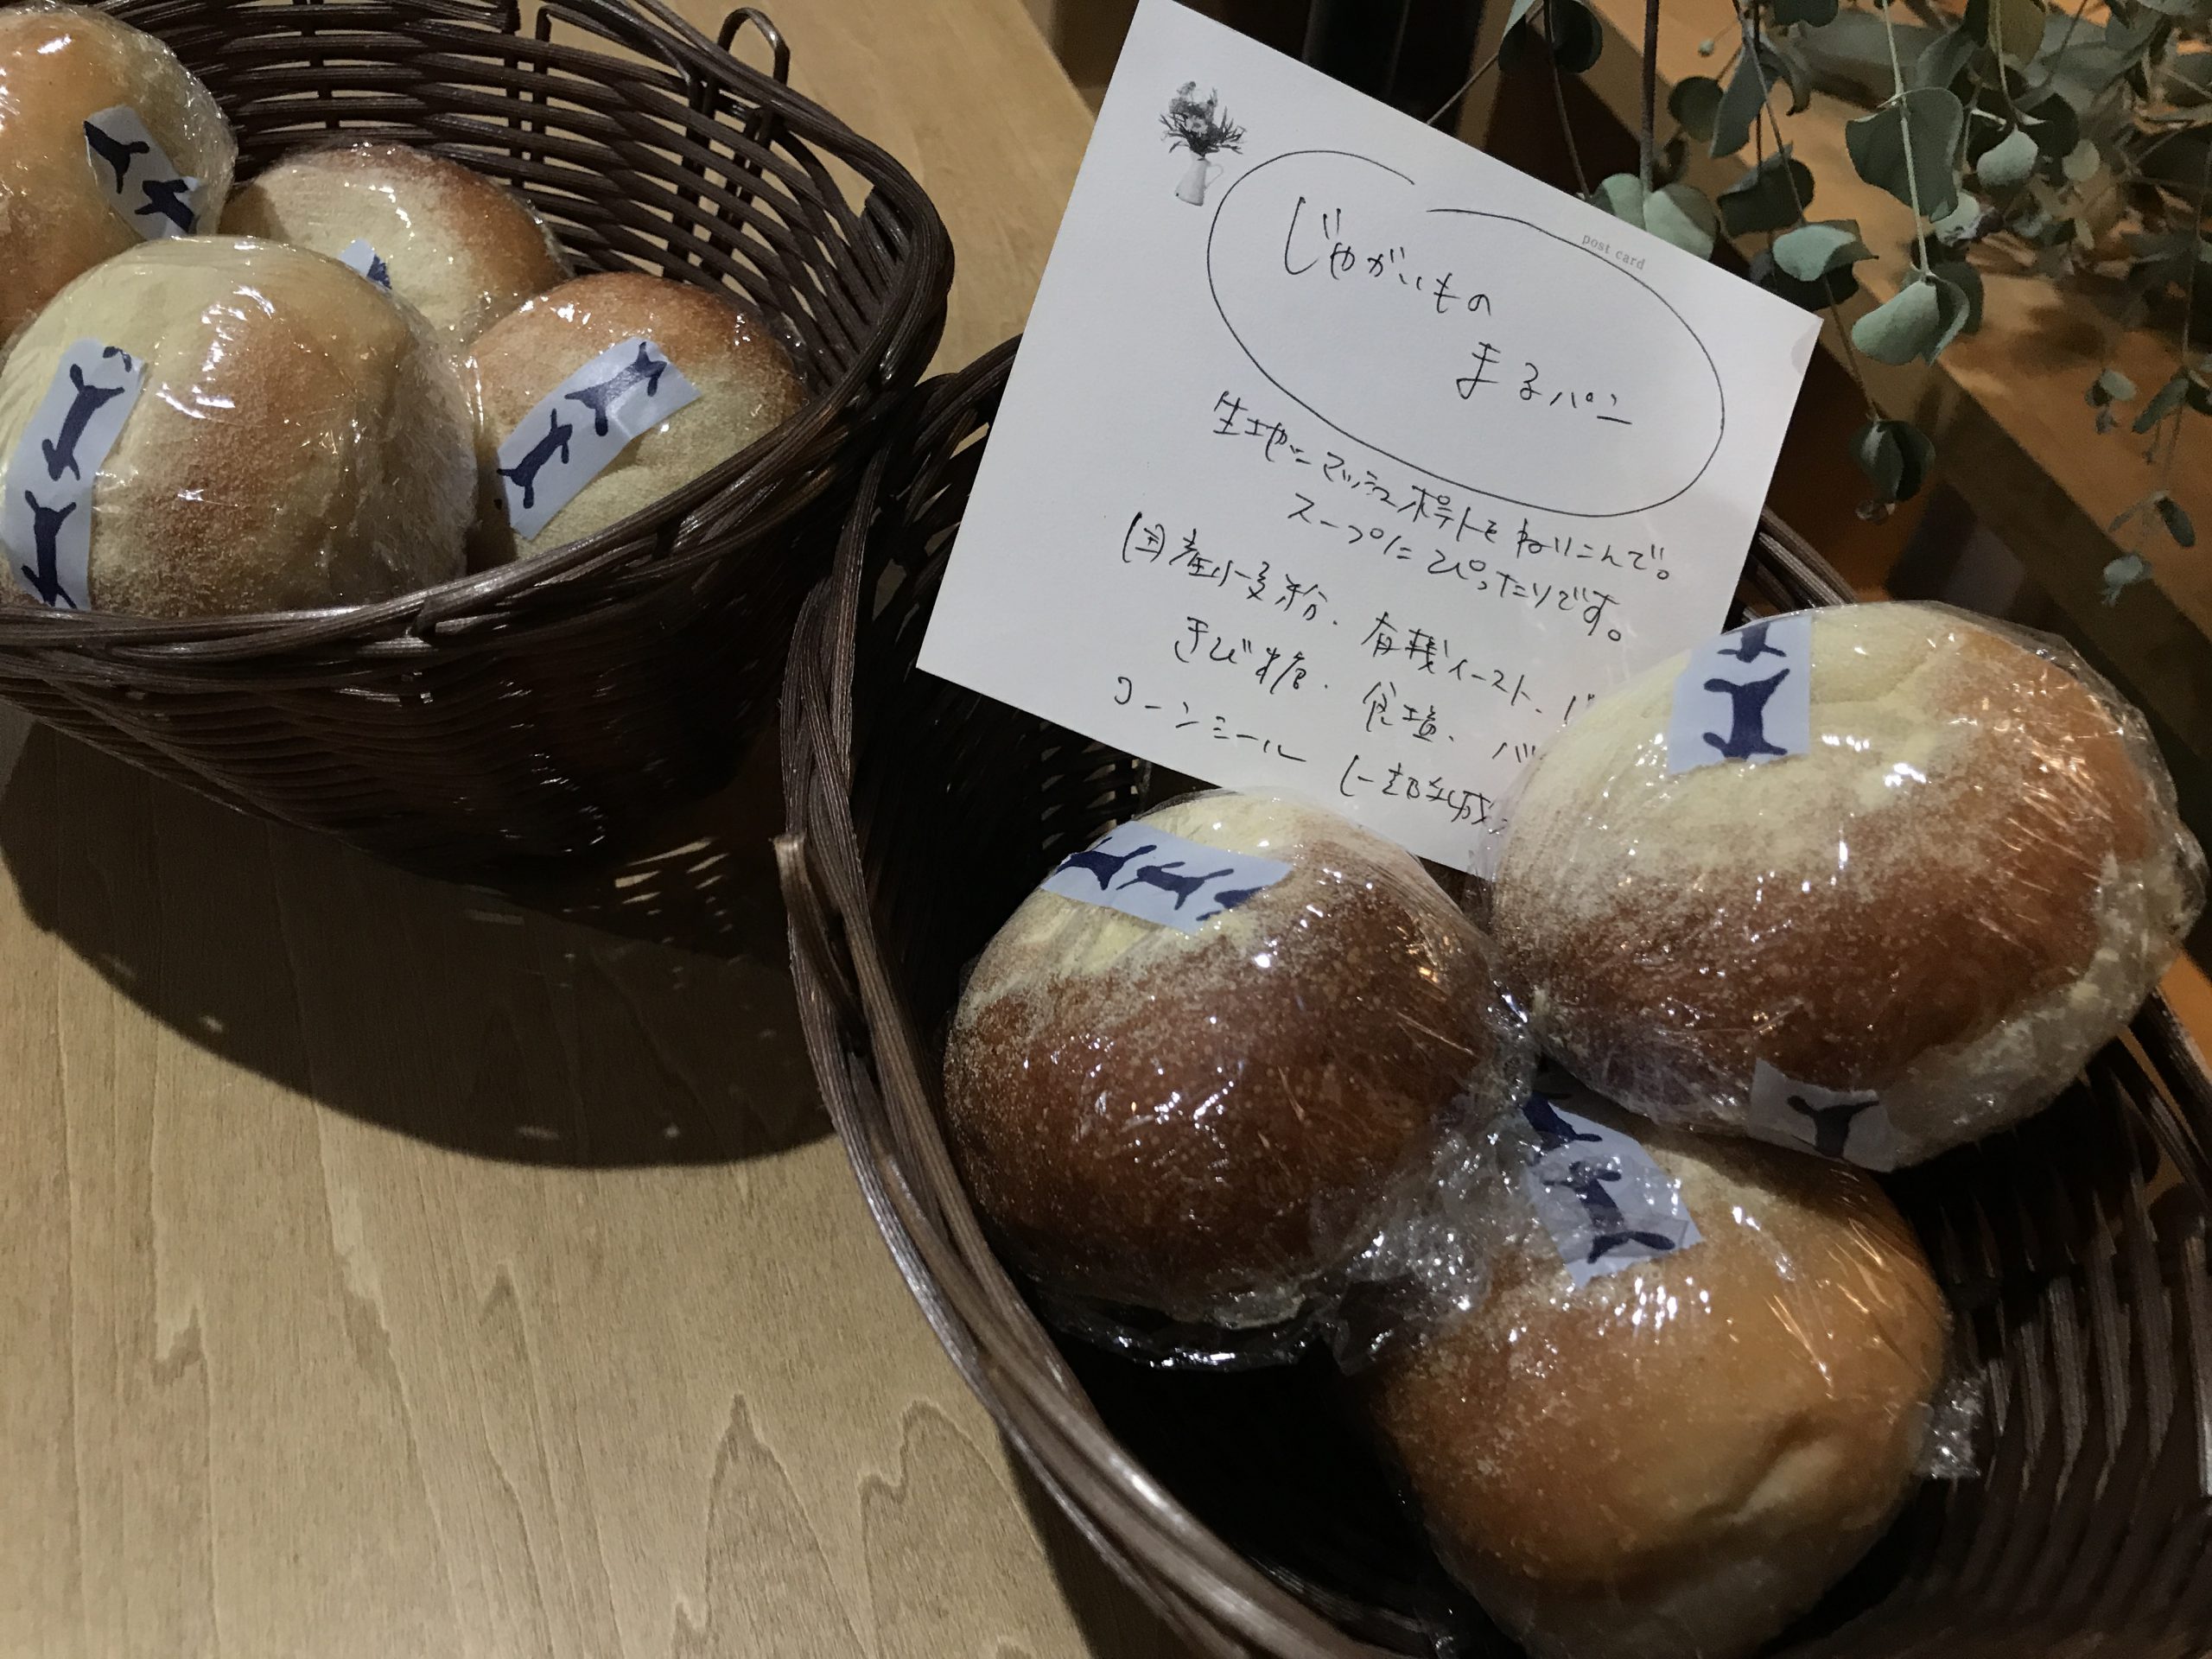 post card
じゃがいもの
まるパン
生地にマッシュポテトをねりこんで。
スープにぴったりです。
国産小麦粉、有機イースト、バ
きび糖、食塩、バ
コーンミール (一部乳成